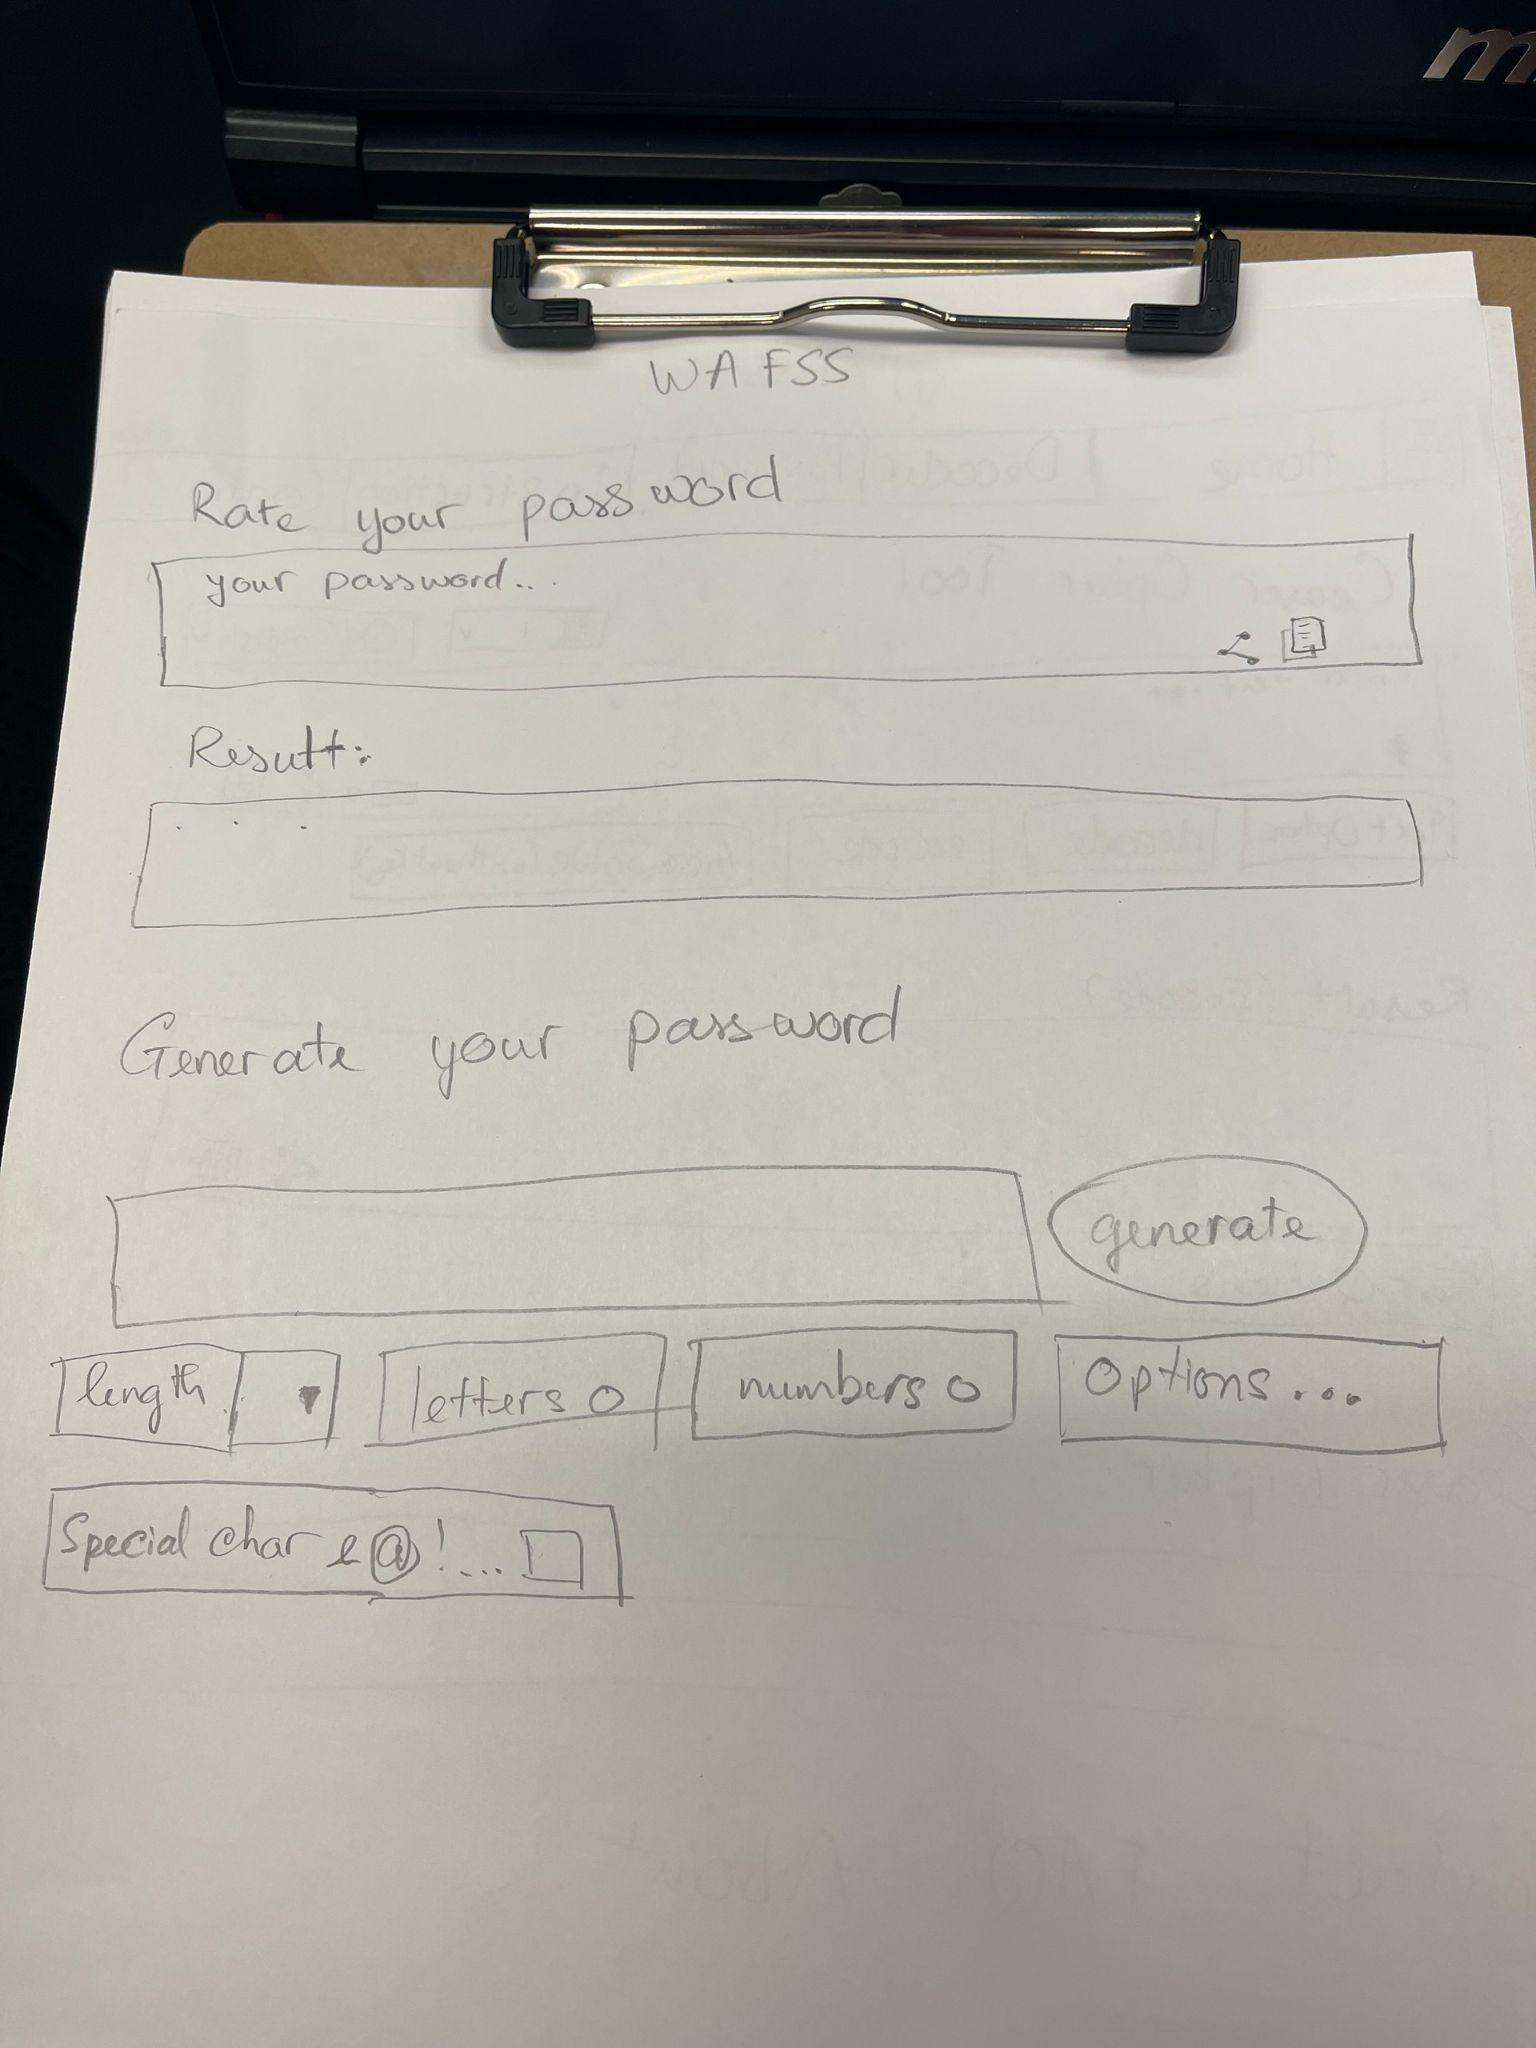 WAFSS
Rate your password
your password...
Result:
. . .
Generate your password
generate
length
letters
numbers
Options...
Special char @!...